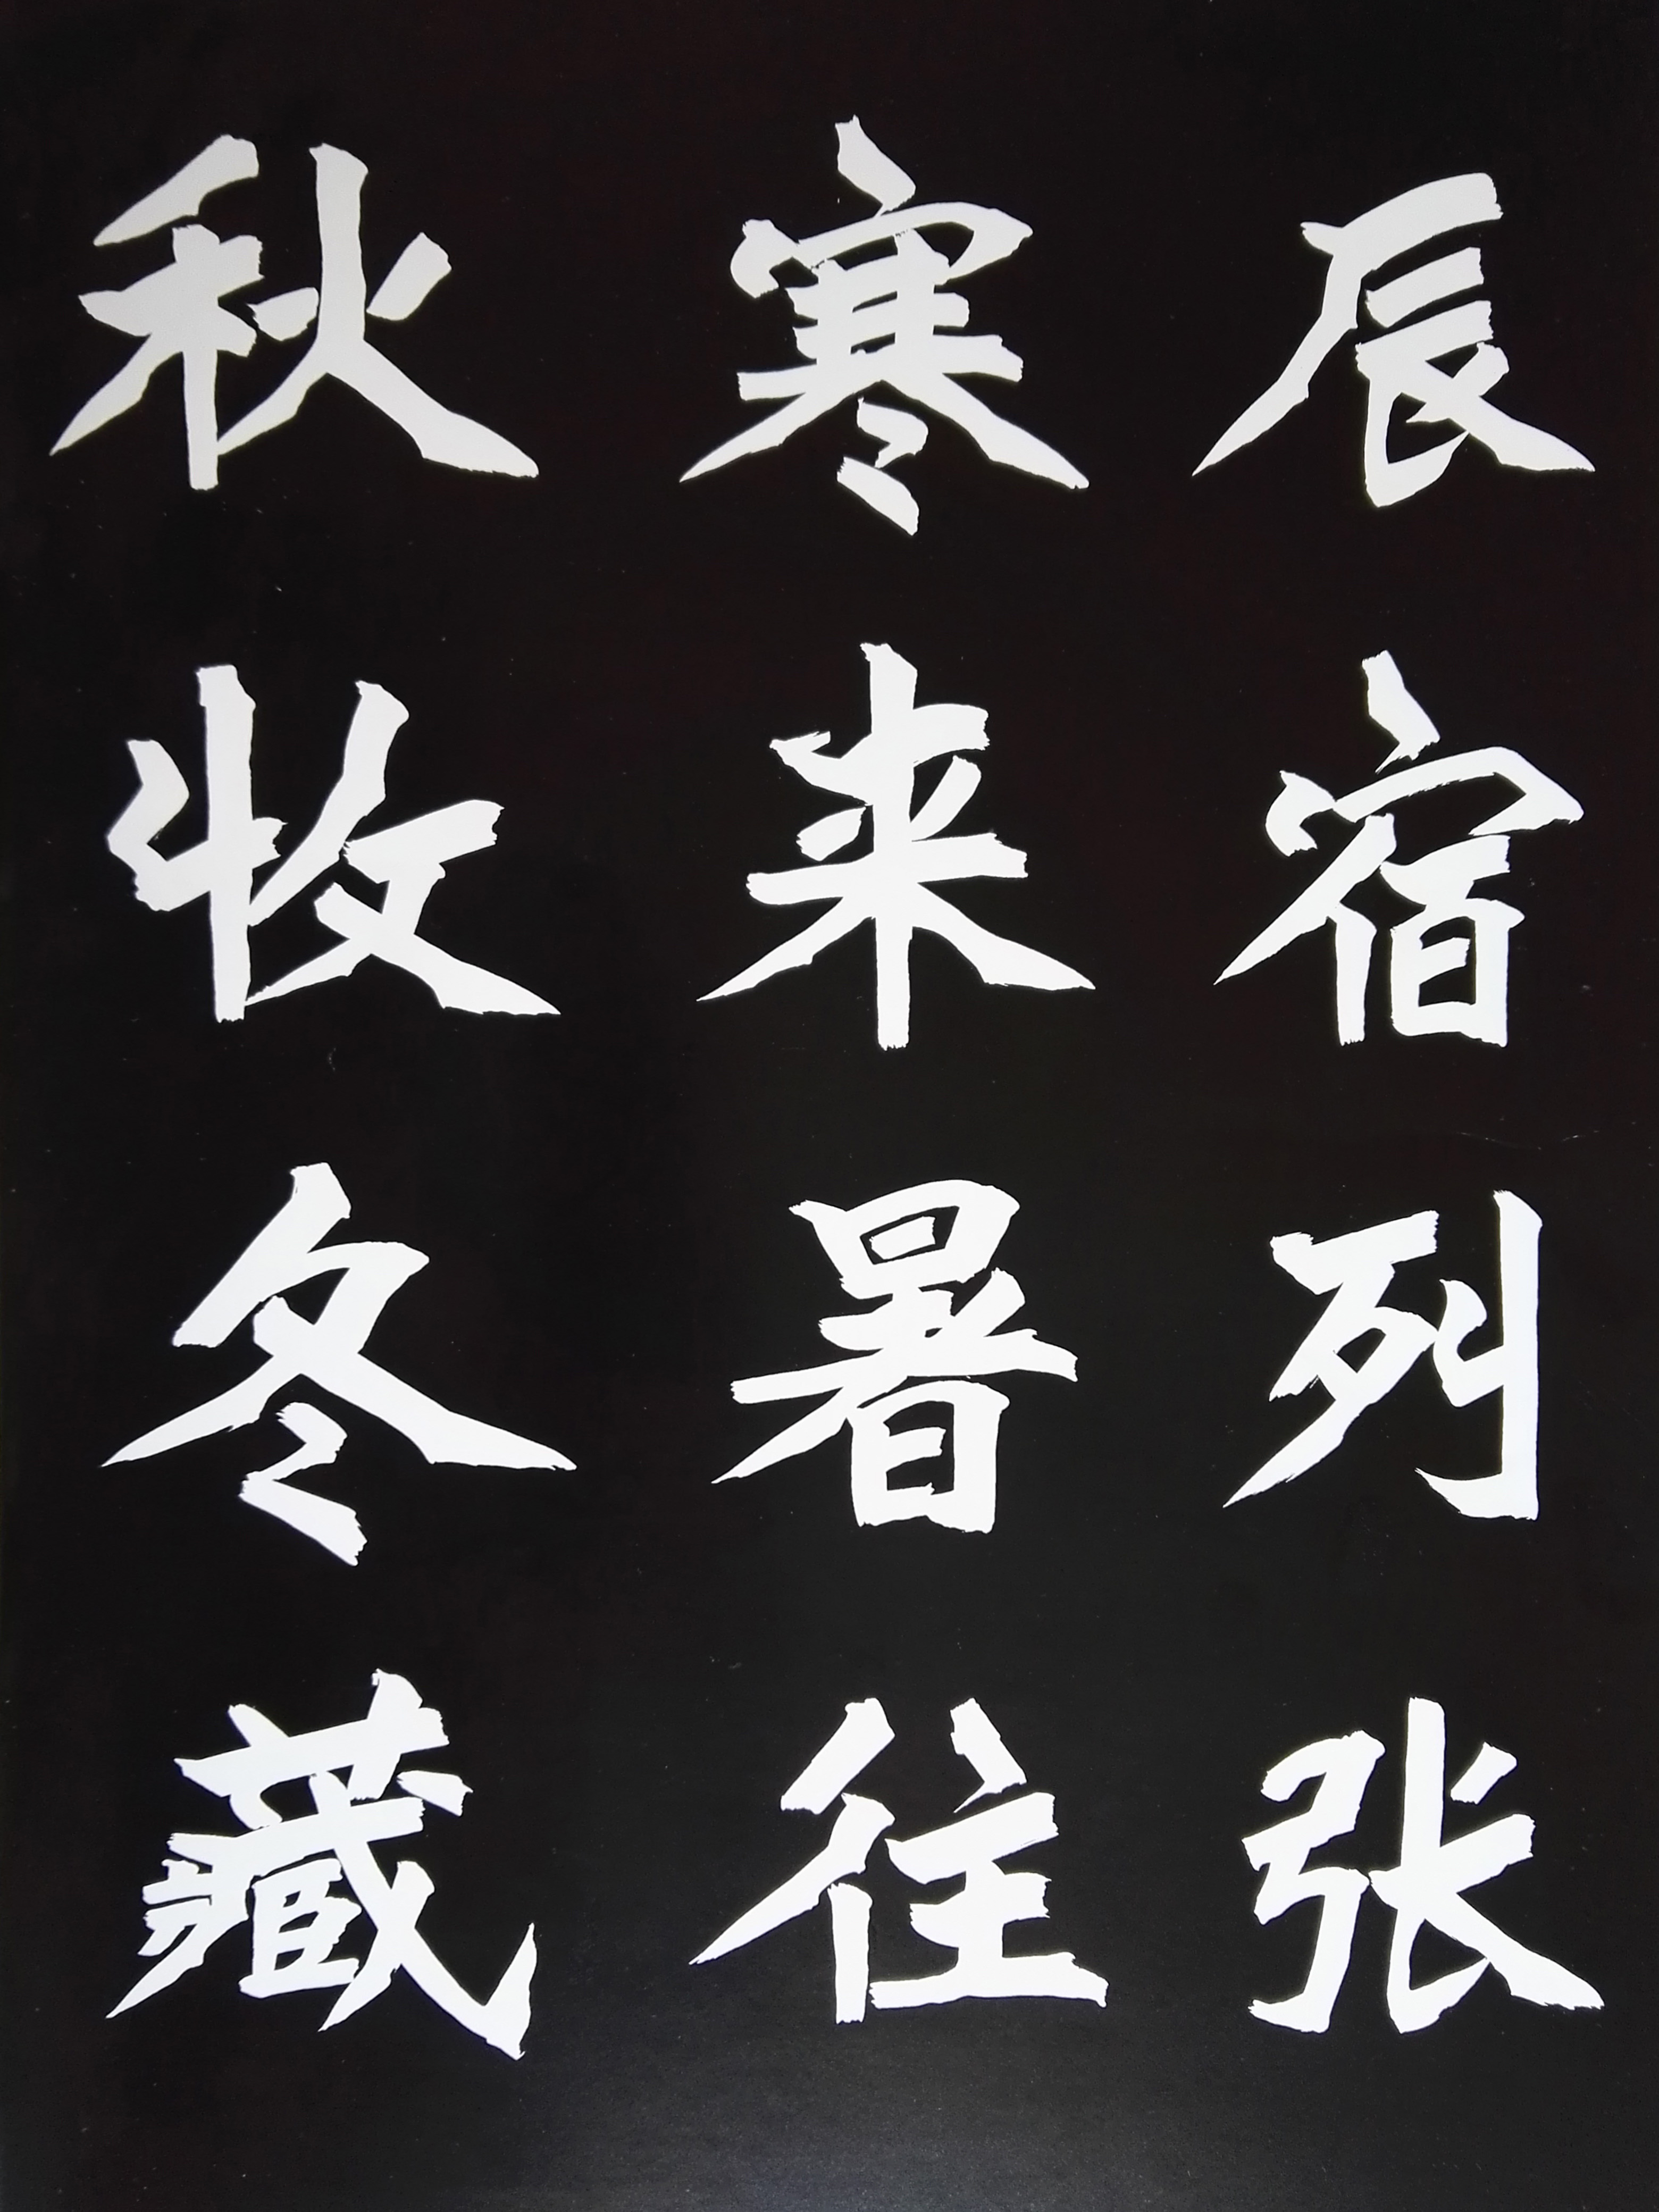 辰宿列张
寒来暑往
秋收冬藏